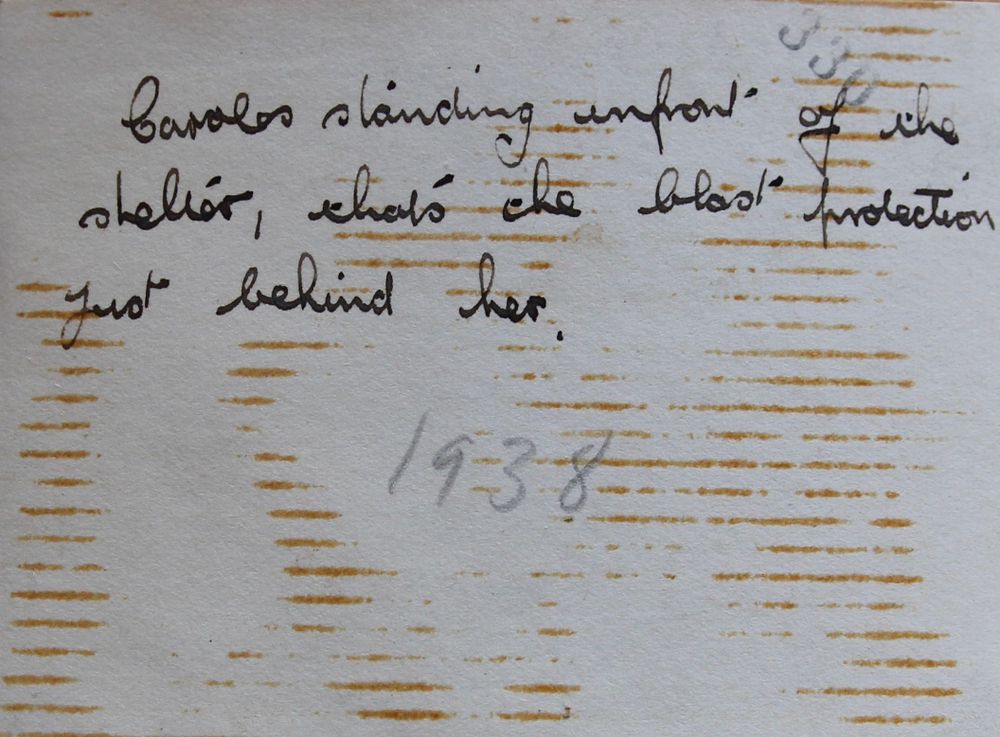 330
Caroles standing infront of the
shelter, thats the blast protection
just behind her.
1938